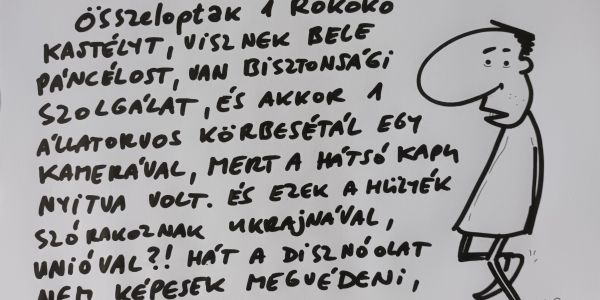 ÖSSZELOPTAK 1 ROKOKÓ
KASTÉLYT, VISZNEK BELE
PÁNCÉLOST, VAN BISZTONSÁGI
SZOLGÁLAT, ÉS AKKOR 1
ÁLLATORVOS KÖRBESÉTÁL EGY
KAMERÁVAL, MERT A HÁTSÓ KAPU
NYITVA VOLT. ÉS EZEK A HÜLYÉK
SZÓRAKOZNAK UKRAJNÁVAL,
UNIÓVAL?! HÁT A DISZNÓOLAT
NEM KÉPESEK MEGVÉDENI,